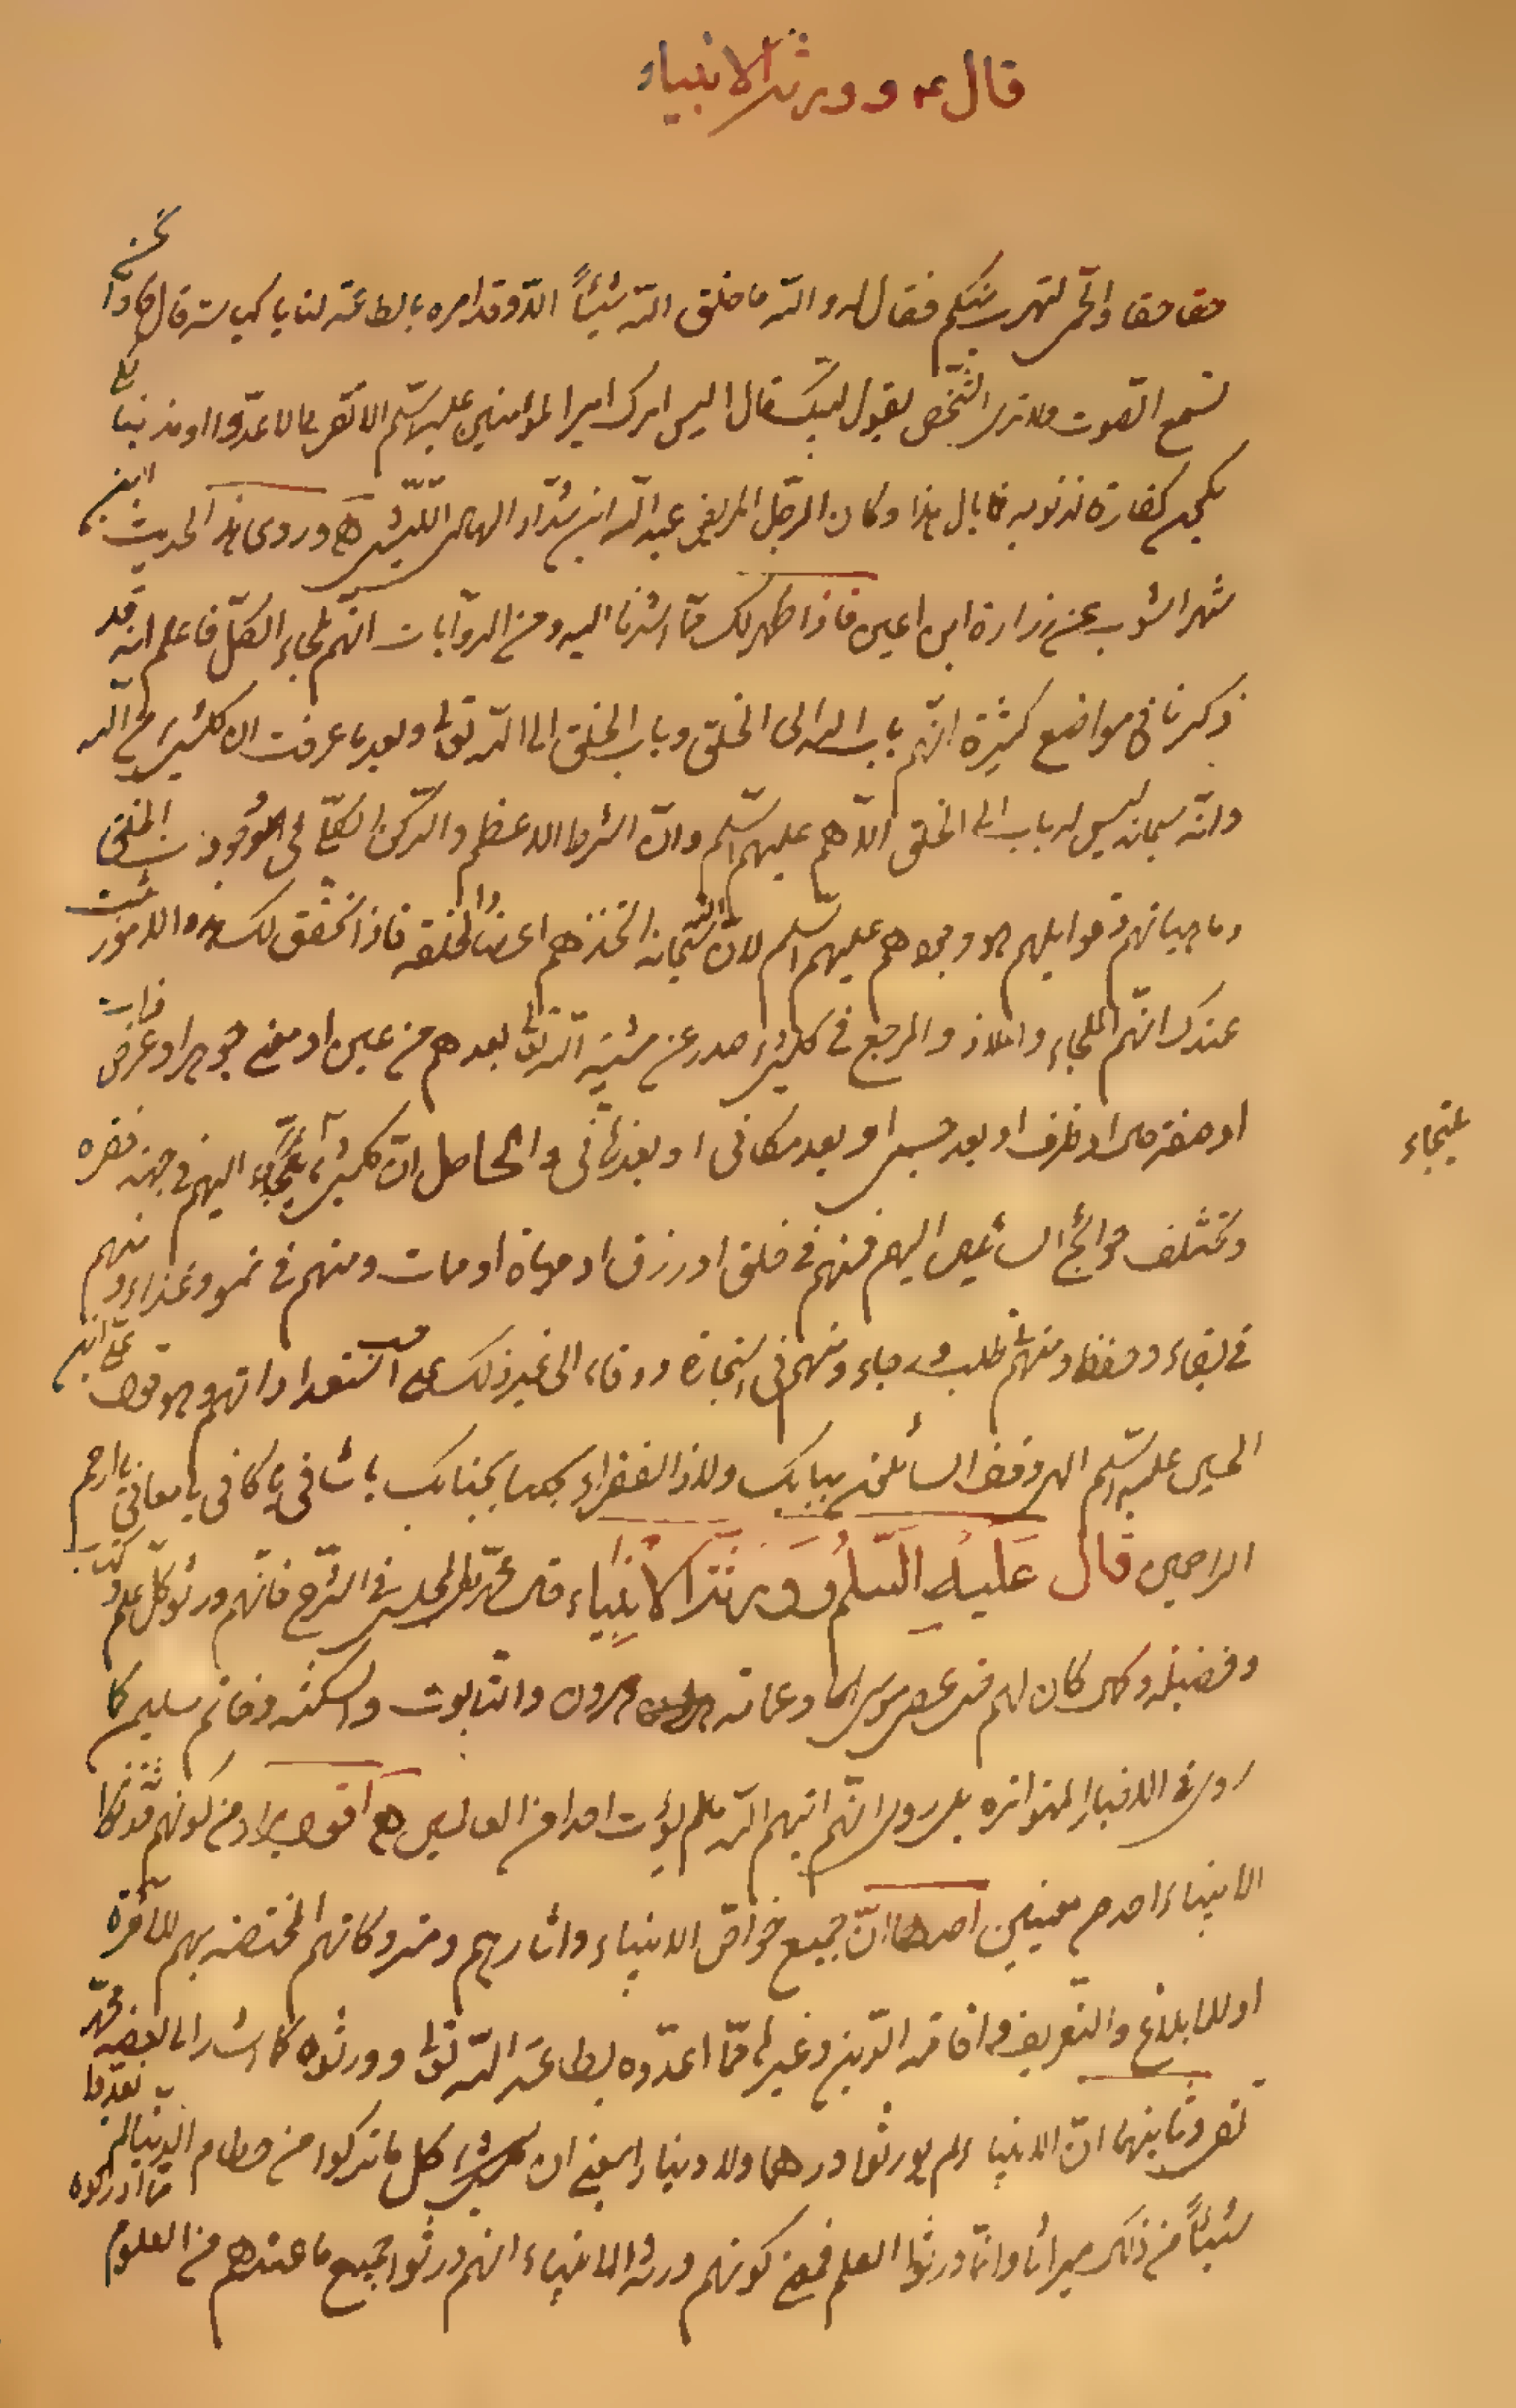 قال ع و ورثة الانبياء
حقا حقا والحمى لتهرب منكم فقال له والله ما خلق الله شيئاً الا وقد امره بالطاعة لنا يا كباسة قال فاذا نحن
نسمع الصوت ولا نرى الشخص يقول لبيك قال اليس امرك امير المؤمنين عليه السلم الا تقربى الا عدوا او مذنبا لكى
يكون كفارة لذنوبه فما بال هذا وكان الرجل المريض عبد الله ابن شداد الهادى الليثى ه وروى هذا الحديث ابن
شهراشوب عن زرارة ابن اعين فاذا ظهر لك مما اشرنا اليه ومن الروايات انهم ملجاء الكل فاعلم انه قد
ذكرنا فى مواضع كثيرة انهم باب الله الى الخلق وباب الخلق الى الله تعالى وبعد ما عرفت ان كلشئ من الله
وانه سبحانه ليس له باب الى الخلق الا هم عليهم السلم وان الشرط الاعظم والركن الكلى فى الوجود الخلق
وماهياتهم وقوابلهم هو وجودهم عليهم السلم لان الله سبحانه اتخذهم اعضاداً لخلقه فاذا تحقق لك هذه الامور ثبت
عندك انهم الملجاء والملاذ والمرجع فى كلشئ صدر عن مشية الله تعالى بعدهم من عين او معنى جوهر او عرض ذات
او صفة حال او ظرف او بعد جسمى او بعد مكانى او بعد زمانى والحاصل ان كلشئ يلتجاء اليهم فى جهة فقره
يلتجاء
وتختلف حوائج السائلين اليهم فمنهم فى خلق او رزق او حياة او ممات ومنهم فى نمو وغذاء ومنهم
فى بقاء وحفظ ومنهم فى طلب ورجاء ومنهم فى استجارة ووفاء الى غير ذلك على حسب استعداداتهم وهو قول على ابن
الحسين عليه السلم الهى وقف السائلون ببابك ولاذ الفقراء بجنابك يا شافى يا كافى يا معافى يا ارحم
الراحمين قال عَليهِ السّلمُ وَوَرثةُ الانبِياء قال محمد تقى المجلسى فى الشرح فانهم ورثو كل علم وكتب
وفضيلة وكمال كان لهم حتى عصى موسى وعمامة هرون والتابوت والسكينة وخاتم سليمن كما
روى فى الاخبار المتواترة بل روى انهم اتيهم الله ما لم يؤت احدا من العالمين ه اقول يراد من كونهم ورثة
الانبياء احد معنيين احدهما ان جميع خواص الانبياء واثارهم ومتروكاتهم المختصة بهم للمآثرة
او للابلاغ والتعريف واقامة الدين وغيرها مما اعدوه لطاعة الله تعالى وورثوه كما اشرنا الى بعضه محمد
تعدها
نص وثانيهما ان الانبياء لم يورثوا درهما ولا دينارا يعنى ان كل ما تركوا من حطام الدنيا لم
شيئاً من ذلك ميراثا وانما ورثوا العلم فمعنى كونهم ورثة الانبياء انهم ورثوا جميع ما عندهم من العلوم